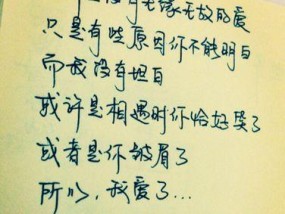 没有无缘无故的爱
只是有些原因你不能明白
而我没有坦白
或许是相遇时你恰好哭了
或者是你皱眉了
所以，我爱了...